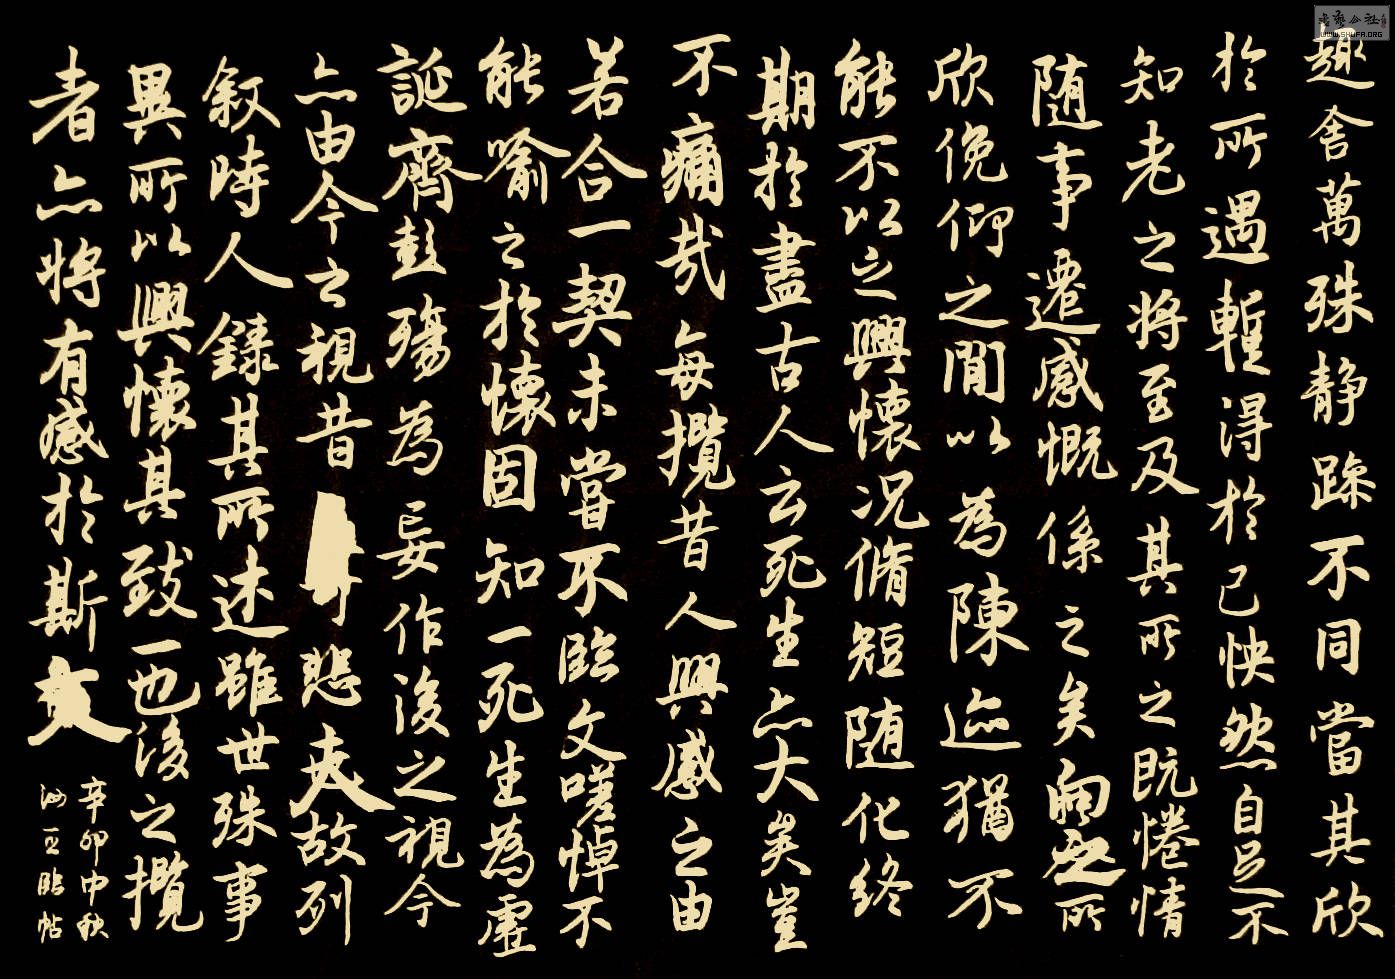 趣舍萬殊静躁不同當其欣
於所遇蹔得於己怏然自足不
知老之將至及其所之既惓情
随事遷感慨係之矣向之所
欣俛仰之閒以為陳迹猶不
能不以之興懷况脩短随化終
期於盡古人云死生亦大矣豈
不痛哉每攬昔人興感之由
若合一契未嘗不臨文嗟悼不
能喻之於懷固知一死生為虚
誕齊彭殤為妄作後之視今
亦由今之視昔悲夫故列
叙時人錄其所述雖世殊事
異所以興懷其致一也後之攬
者亦將有感於斯文
辛卯中秋
臨帖
書藝公社
WWW.SHUFA.ORG